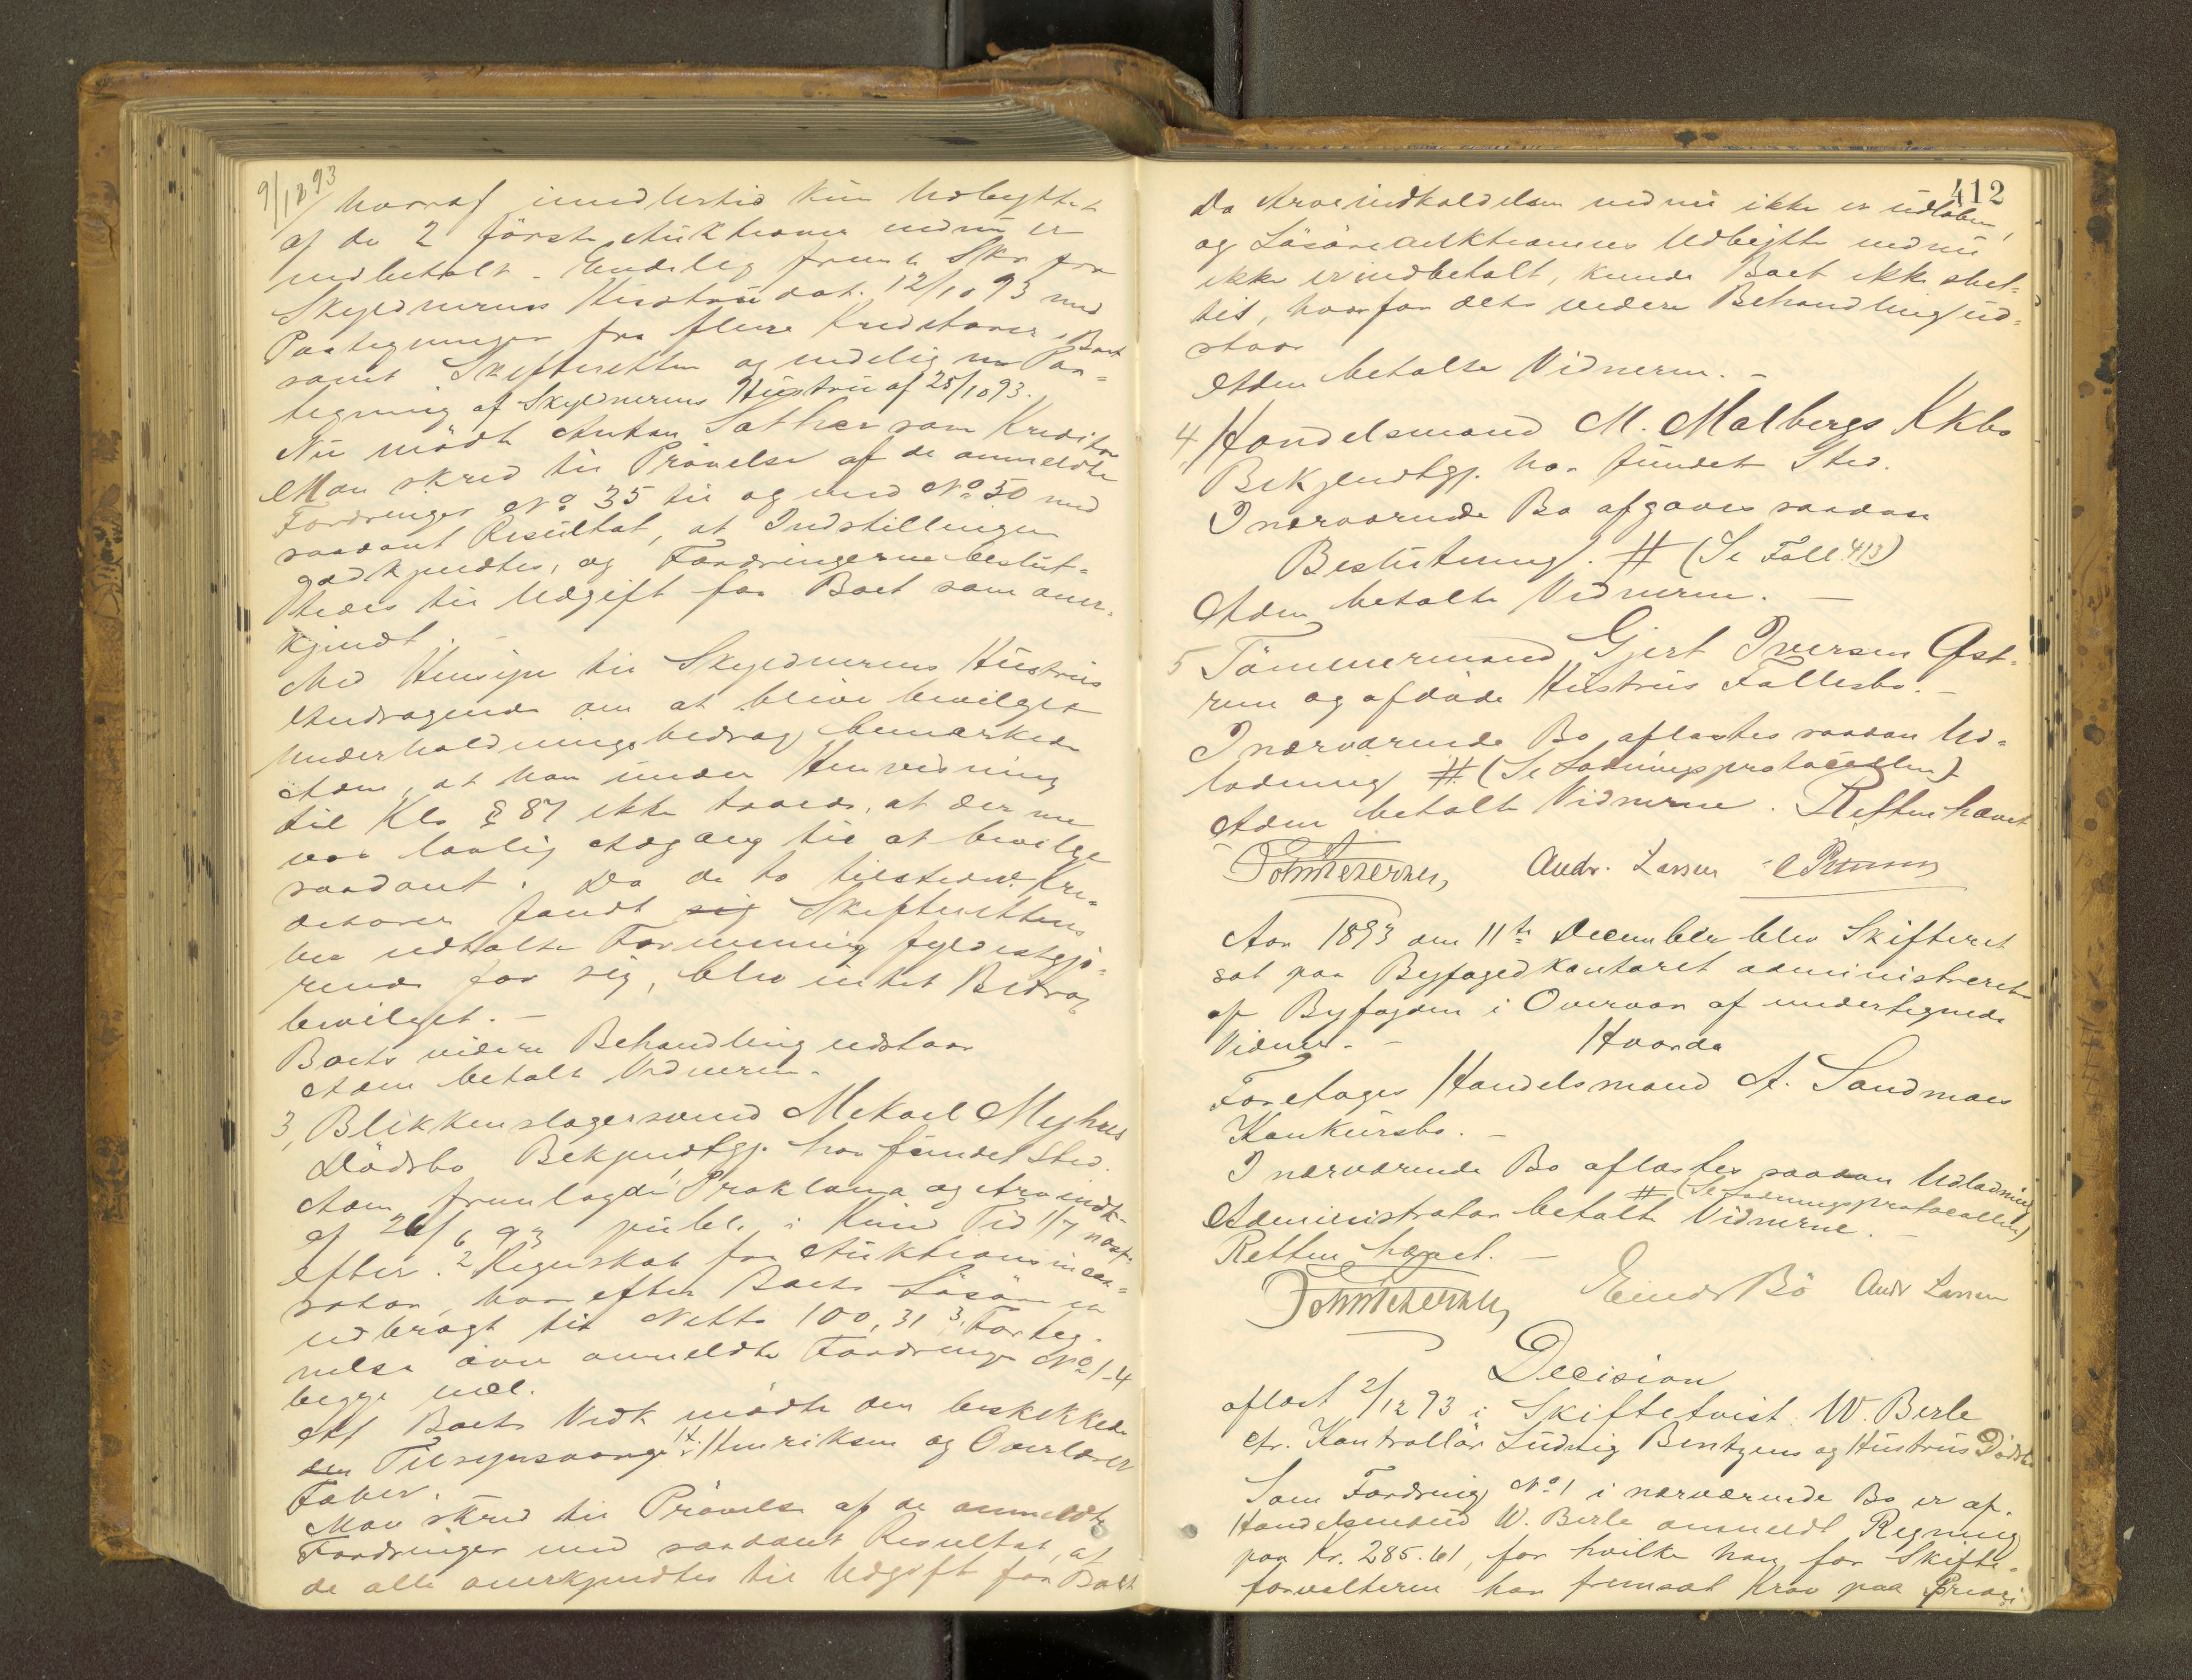 9/12 93
hvoraf imidlertid kun Udbyttet
af de 2 første Auktioner endnu er
indbetalt. Endelig freml. Skr fra
Skyldnerens Hustru dat. 12/10 93 med
Paategninger fra flere Kreditorer i Boet
samt Skifteretten og endelig en Paa-
tegning af Skyldnerens Hustru af 25/10 93.
Nu mødte Anton Sæther som Kreditor
Man skred til Prøvelse af de anmeldte
Fordringer No 35 til og med No 50 med
saadant Resultat, at Indstillingen
godkjendtes, og Fordringerne beslut-
tedes til Udgift for Boet som aner-
kjendt.
Med Hensyn til Skyldnerens Hustrus
Andragende om at blive bevilget
Underholdningsbidrag bemærkede
Adm, at han under Henvisning
til Kl § 87 ikke troede, at der nu
var lovlig Adgang til at bevilge
saadant. Da de to tilstedev. Kre-
ditorer fandt sig Skifterettens
her udtalte Formening fyldestgjø-
rende for sig, blev intet Bidrag
bevilget. -
Boets videre Behandling udstaar
Adm betalte Vidnerne.
3, Blikkenslagersvend Mekael Myhres
Dødsbo Bekjendtgj. har fundet Sted.
Adm fremlagde 1 Proklama og Arveindk.
af 26/6 93 publ. i Kund Tid 1/7 næst-
efter. 2 Regnskab fra Auktionsincas-
sator, hvorefter Boets Løsøre er
udbragt til Netto 100,31 3, Forteg-
nelse over anmeldte Fordringer No 1-4
begge incl.
Af Boets Vedk. mødte den beskikkede
den Tilsynsværge H. Henriksen og Overlærer
Faber.
Man skred til Prøvelse af de anmeldte
Fordringer med saadant Resultat, at
de alle anerkjendtes til Udgift for Boet
412
Da Arveindkaldelsen endnu ikke er udløben,
og Løsøreauktionens Udbytte endnu
ikke er indbetalt, kunde Boet ikke slut-
tes, hvorfor dets videre Behandling ud-
staar
Adm betalte Vidnerne. -
4, Handelsmand M. Malbergs Kkbo
Bekjendtgj. har fundet Sted.
I nærværende Bo afgaves saadan
Beslutning. # (Se Foll. 413)
Adm betalte Vidnerne. -
5 Tømmermand Gjert Iversen Øst-
rem og afdøde Hustrus Fællesbo. -
I nærværende Bo aflæstes saadan Ud-
lodning # (Se Lodningsprotocollen)
Adm betalte Vidnerne. Retten hævet
Andr. Larsen
Aar 1893 am 11te December blev Skifteret
sat paa Byfogedkontoret administreret
af Byfogden i Overvær af undertegnede
Vidner. - Hvorda
Foretoges Handelsmand A. Sandmæs
Konkursbo. -
I nærværende Bo aflæstes saadan Udlodning
# (Se Lodningsprotocollen)
Administrator betalte Vidnerne. -
Retten hævet. -
Eind Bö Andr Larsen
Decision
aflæst 2/12 93 i Skiftetvist W. Berle
ctr. Kontrollør Ludvig Bentzens og Hustrus Dødsbo
Som Fordring No 1 i nærværende Bo er af
Handelsmand W. Berle anmeldt Regning
paa Kr. 285.61, for hvilke han for Skifte-
forvalteren har fremsat Krav paa Priori